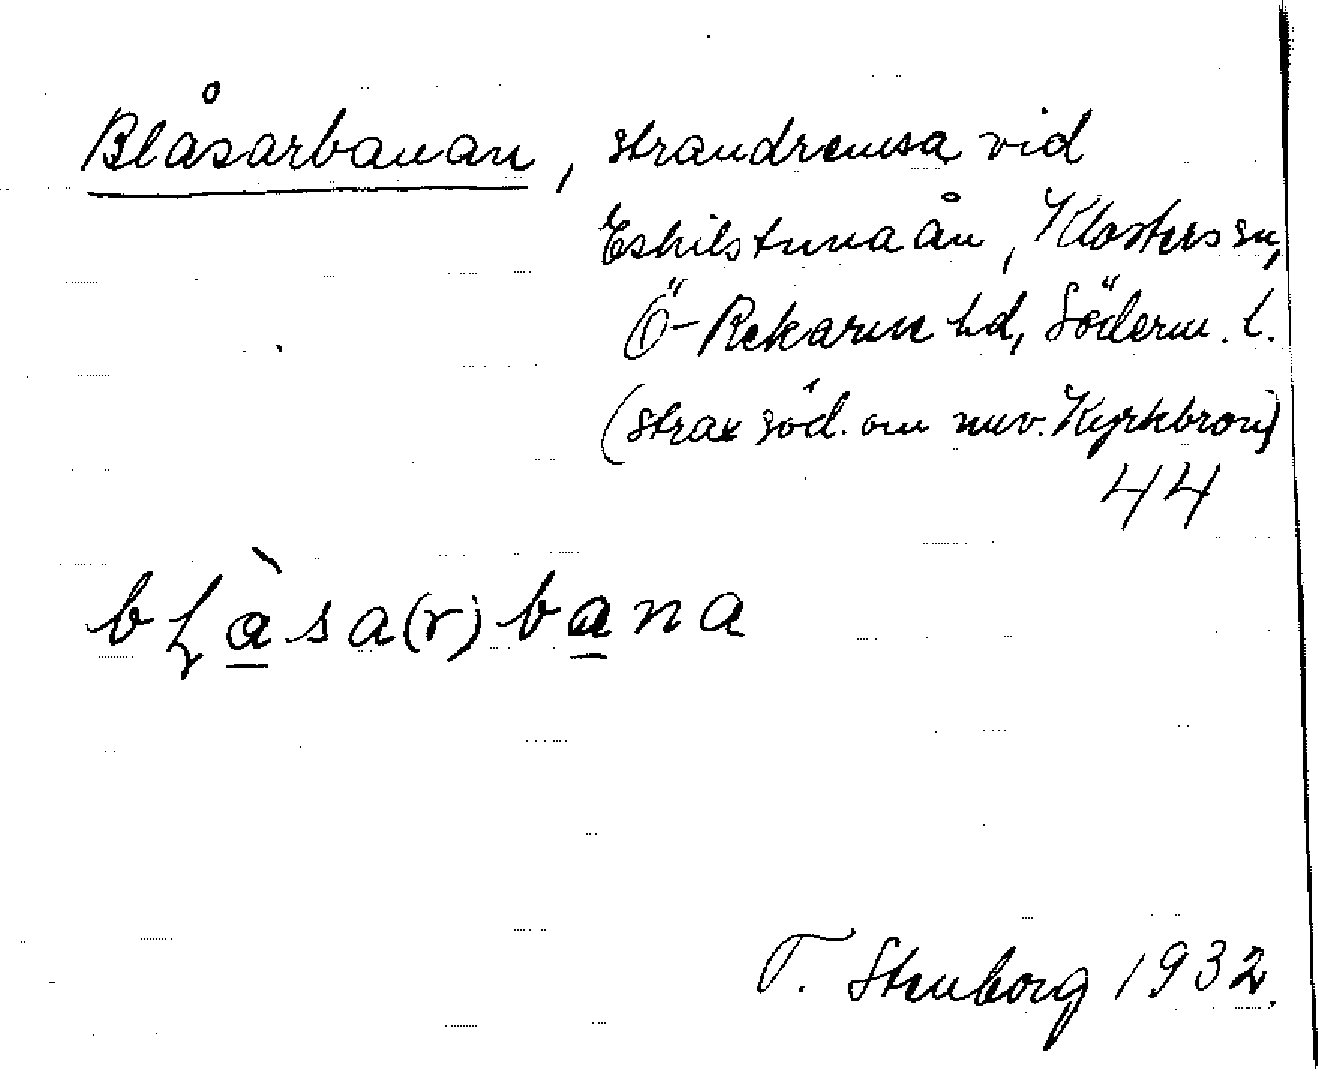 Blåsarbanan, strandremsa vid
Eskilstunaån, Klosters sn,
Ö-Rekarne hd, Söderm. l.
(strax söd. om nuv. Kyrkbron)
44
bł<u>à</u>sa(r)b<u>a</u>na
T. Stenborg 1932.